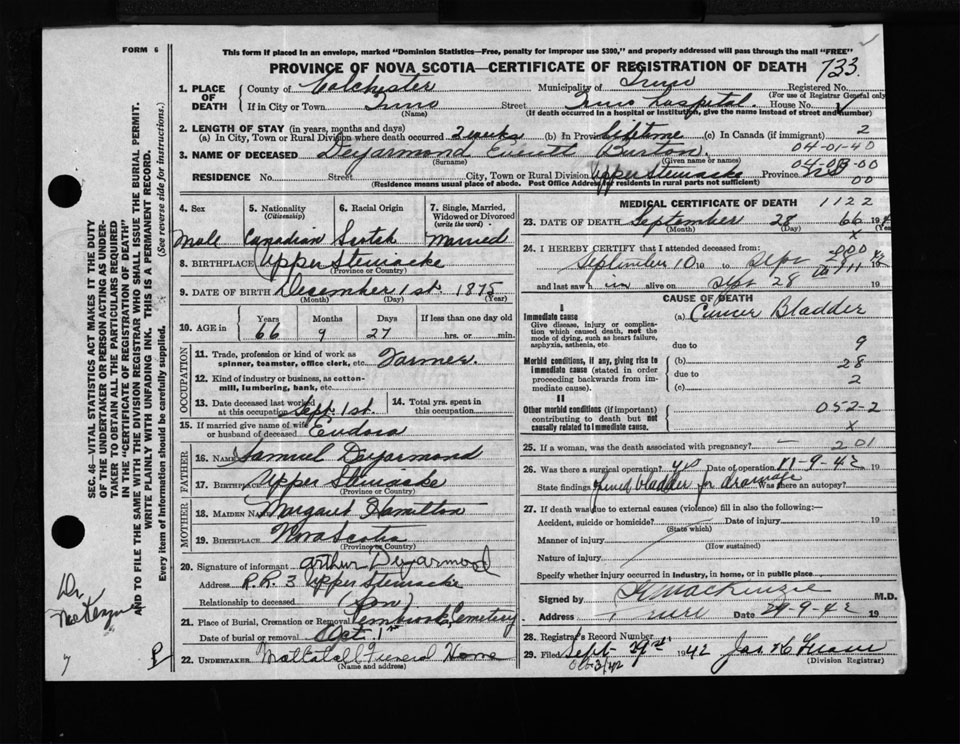 FORM 6
This form if placed in an envelope, marked "Dominion Statistics—Free, penalty for improper use $300," and properly addressed will pass through the mail "FREE"
PROVINCE OF NOVA SCOTIA—CERTIFICATE OF REGISTRATION OF DEATH
733
1. PLACE OF DEATH
County of Colchester Municipality of Truro Registered No.
(For use of Registrar General only)
If in City or Town Truro Street Truro Hospital House No.
(Name) (If death occurred in a hospital or institution, give the name instead of street and number)
2. LENGTH OF STAY (in years, months and days)
(a) In City, Town or Rural Division where death occurred 2 weeks (b) In Province lifetime (c) In Canada (if immigrant) 2
04-01-40
3. NAME OF DECEASED Deyarmond Everett Burton.
(Surname) (Given name or names)
04-03-00
RESIDENCE No. Street City, Town or Rural Division Upper Stewiacke Province NS
(Residence means usual place of abode. Post Office Address for residents in rural parts not sufficient) 00
4. Sex Male
5. Nationality (Citizenship) Canadian
6. Racial Origin Scotch
7. Single, Married, Widowed or Divorced (write the word) Married
8. BIRTHPLACE Upper Stewiacke
(Province or Country)
9. DATE OF BIRTH December 1st. 1875
(Month) (Day) (Year)
10. AGE in Years Months Days If less than one day old
66 9 27 hrs. or min.
OCCUPATION
11. Trade, profession or kind of work as spinner, teamster, office clerk, etc. Farmer.
12. Kind of industry or business, as cotton-mill, lumbering, bank, etc.
13. Date deceased last worked at this occupation Sept. 1st.
14. Total yrs. spent in this occupation
15. If married give name of wife or husband of deceased Eudora
FATHER
16. NAME Samuel Deyarmond
17. BIRTHPLACE Upper Stewiacke
(Province or Country)
MOTHER
18. MAIDEN NAME Margaret Hamilton
19. BIRTHPLACE Nova Scotia
(Province or Country)
20. Signature of informant Arthur Deyarmond
Address R.R. 3 Upper Stewiacke
Relationship to deceased (Son)
21. Place of Burial, Cremation or Removal Pembrook Cemetery
Date of burial or removal Oct. 1st
22. UNDERTAKER Mattatall Funeral Home
(Name and address)
MEDICAL CERTIFICATE OF DEATH 1122
23. DATE OF DEATH September 28 66 194
(Month) (Day) (Year)
x
24. I HEREBY CERTIFY that I attended deceased from:
000
September 10 19 to Sept 28 42
and last saw him alive on Sept 28 19
CAUSE OF DEATH
I
Immediate cause (a) Cancer Bladder
Give disease, injury or complication which caused death, not the mode of dying, such as heart failure, asphyxia, asthenia, etc.
due to 9
Morbid conditions, if any, giving rise to immediate cause (stated in order proceeding backwards from immediate cause).
(b) 28
due to 2
(c)
II
Other morbid conditions (if important) contributing to death but not causally related to immediate cause.
052-2
x
25. If a woman, was the death associated with pregnancy? — 201
26. Was there a surgical operation? yes Date of operation 11-9-42 19
State findings bladder for drainage Was there an autopsy?
27. If death was due to external causes (violence) fill in also the following:—
Accident, suicide or homicide? Date of injury 19
(State which)
Manner of injury
(How sustained)
Nature of injury
Specify whether injury occurred in industry, in home, or in public place
Signed by MacKenzie M.D.
Address Truro Date 29-9-42 19
28. Registrar's Record Number
29. Filed Sept 29th 1942 Jas
Oct 3/42 (Division Registrar)
SEC. 46—VITAL STATISTICS ACT MAKES IT THE DUTY
OF THE UNDERTAKER OR PERSON ACTING AS UNDER-
TAKER TO OBTAIN ALL THE PARTICULARS REQUIRED
IN THE "CERTIFICATE OF REGISTRATION OF DEATH"
AND TO FILE THE SAME WITH THE DIVISION REGISTRAR WHO SHALL ISSUE THE BURIAL PERMIT.
WRITE PLAINLY WITH UNFADING INK. THIS IS A PERMANENT RECORD.
Every item of Information should be carefully supplied. (See reverse side for instructions.)
Dr.
MacKenzie
7
P